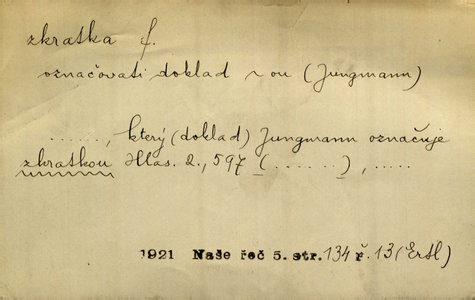 zkratka f.
označovati doklad z-ou (Jungmann)
......, který (doklad) Jungmann označuje
zkratkou Hlas. 2., 597 (......), .....
1921 Naše řeč 5. str. 134 ř. 13 (Ertl)